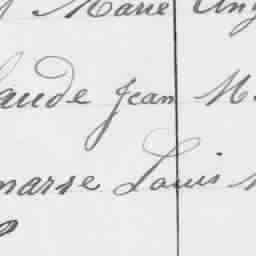 Marie Ang
aude Jean M
marse Louis